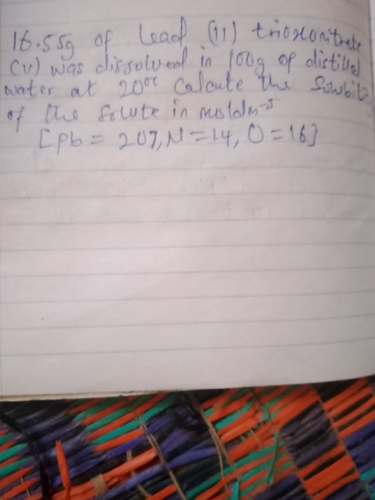 16.55g of lead (11) trioxonitrate
(v) was dissolved in 100g of distilled
water at 20°C calcute the
of the solute in moldm-3
[Pb = 207, N = 14, O = 16]